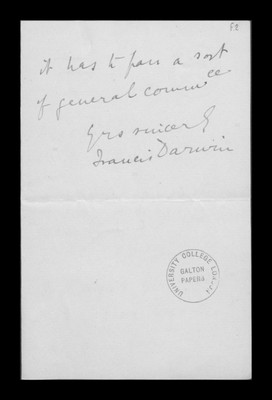 52
it has to pass a sort
of general comm^ce
Yrs sincerely
Francis Darwin
UNIVERSITY COLLEGE LONDON
GALTON
PAPERS